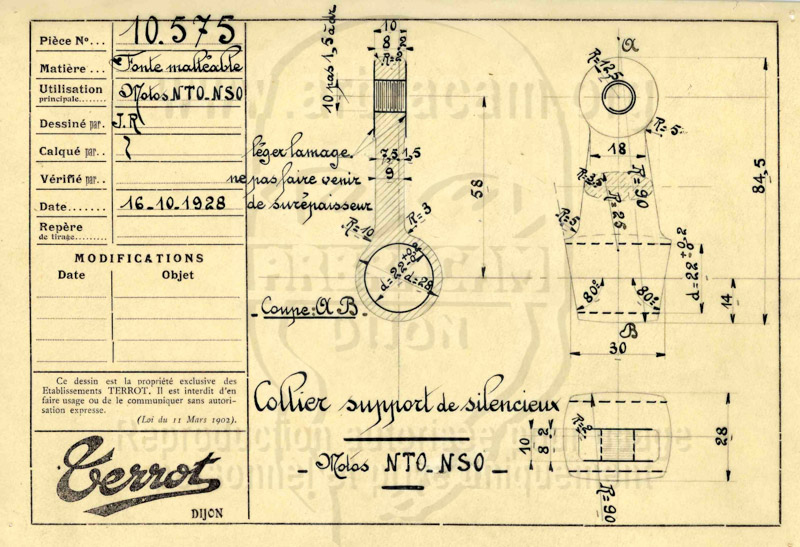 Pièce N°... 10.575
Matière ... Fonte malléable
Utilisation principale........ Motos NTO_NSO
Dessiné par. J.R
Calqué par..
Vérifié par..
Date....... 16_10_1928
Repère de tirage.......
MODIFICATIONS
Date Objet
Ce dessin est la propriété exclusive des
Etablissements TERROT. Il est interdit d'en
faire usage ou de le communiquer sans autori-
sation expresse.
(Loi du 11 Mars 1902).
Terrot
DIJON
10
8
10 pas 1,5 à dr.
léger lamage.
7,5 1,5
9
ne pas faire venir
de surépaisseur
R=10
R=3
d=22+0.2 -0
d=28
58
_ Coupe: A B _
A
R=12,5
R=5
18
R=3,5
R=60
R=26
R=5
84,5
d=22+0.2 -0
80°
80°
14
B
30
Collier support de silencieux
_ Motos NTO_NSO _
10
8
2
R=2
28
R=90
www.arbracam.com
ARBRACAM
DIJON
Reproduction autorisée pour usage
personnel et privé uniquement